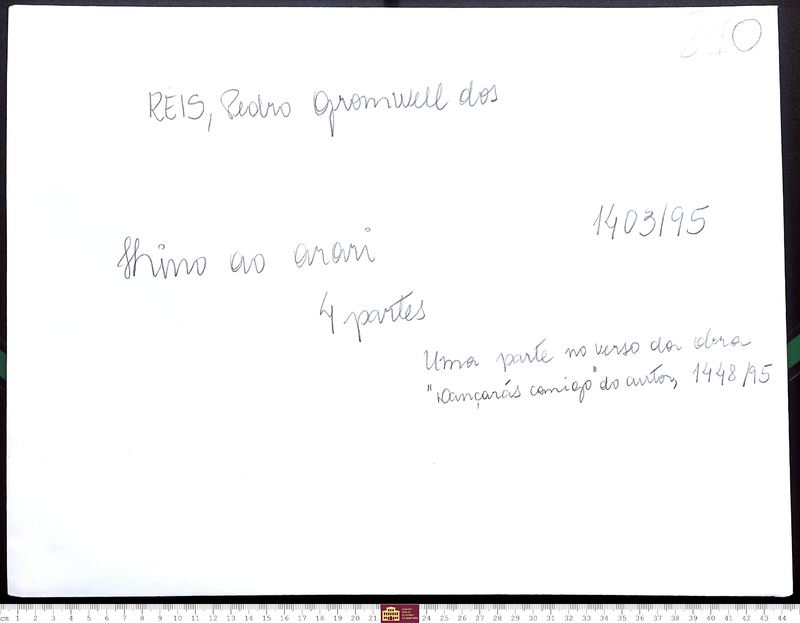 210
REIS, Pedro Gromwell dos
1403/95
Hino ao arari
4 partes
Uma parte no verso da obra
"Dançarás comigo" do autor, 1448/95
cm 1 2 3 4 5 6 7 8 9 10 11 12 13 14 15 16 17 18 19 20 21 24 25 26 27 28 29 30 31 32 33 34 35 36 37 38 39 40 41 42 43 44